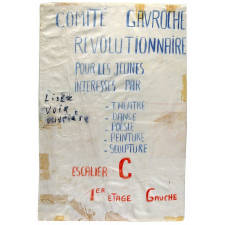 COMITÉ GAVROCHE
REVOLUTIONNAIRE
POUR LES JEUNES
INTERESSÉS PAR
- THEATRE
- DANSE
- POESIE
- PEINTURE
- SCULPTURE
LISEZ
VOIX
OUVRIÈRE
ESCALIER C
1ER ETAGE GAUCHE